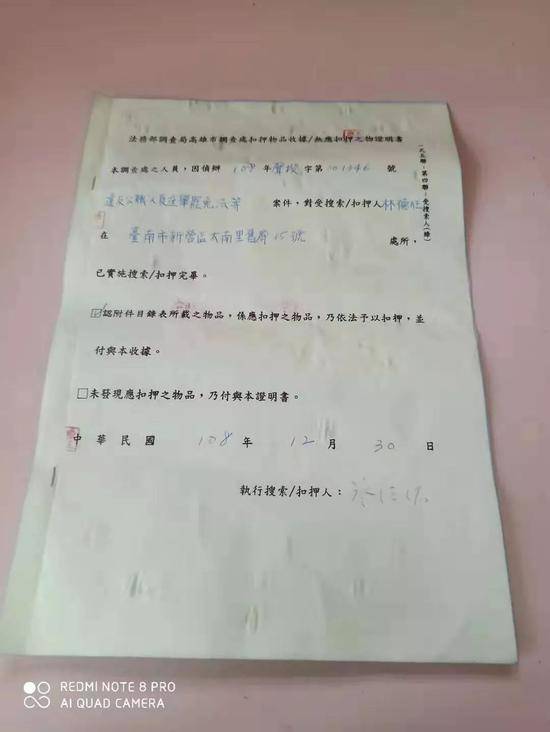 法務部調查局高雄市調查處扣押物品收據/無應扣押之物證明書
一式五聯:第四聯:受搜索人(綠)
本調查處之人員,因偵辦 108 年聲搜字第001346 號
違反公職人員選舉罷免法等 案件,對受搜索/扣押人林
在 臺南市新營區太南里舊廍15號 處所,
已實施搜索/扣押完畢。
☑認附件目錄表所載之物品,係應扣押之物品,乃依法予以扣押,並
付與本收據。
□未發現應扣押之物品,乃付與本證明書。
中華民國 108 年 12 月 30 日
執行搜索/扣押人:
REDMI NOTE 8 PRO
AI QUAD CAMERA